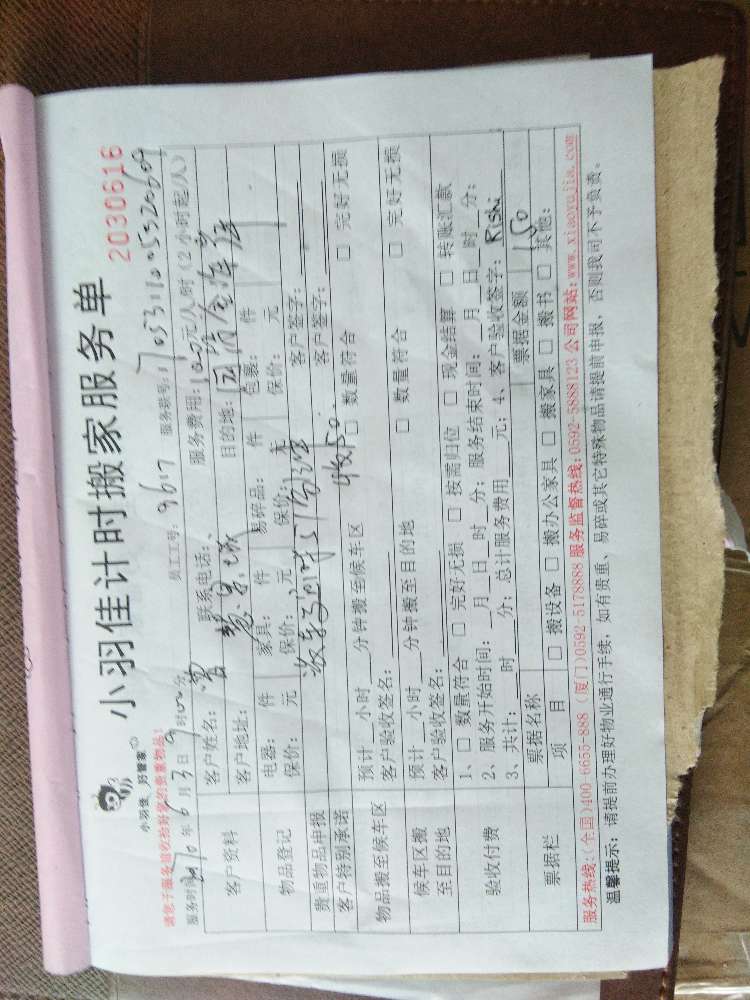 小羽佳计时搬家服务单
2030616
小羽佳_好管家
请您于服务前收拾好您的贵重物品！
服务时间： 年6月3日9时00分 员工工号：9617 服务账号：
客户资料 客户姓名： 联系电话： 服务费用： 元/人/时（2小时起/人）
客户地址： 目的地：
物品登记 电器： 件 家具： 件 易碎品： 件 包裹： 件
保价： 元 保价： 元 保价： 元 保价： 元
贵重物品申报 客户签字：
客户特别承诺 收150. 客户签字：
物品搬至候车区 预计__小时__分钟搬至候车区 □ 数量符合 □ 完好无损
客户验收签名：
候车区搬至目的地 预计__小时__分钟搬至目的地 □ 数量符合 □ 完好无损
客户验收签名：
验收付费 1、□ 数量符合 □ 完好无损 □ 按需归位 □ 现金结算 □ 转账汇款
2、服务开始时间：__月__日__时__分；服务结束时间：__月__日__时__分；
3、共计：__时__分；总计服务费用__元；4、客户验收签字：Rishi
票据栏 票据名称 票据金额 150
项 目 □ 搬设备 □ 搬办公家具 □ 搬家具 □ 搬书 □ 其他：
服务热线：(全国)400-6655-888 (厦门)0592-5178888 服务监督热线：0592-5888123 公司网站：www.xiaoyujia.com
温馨提示：请提前办理好物业通行手续，如有贵重、易碎或其它特殊物品请提前申报，否则我司不予负责。